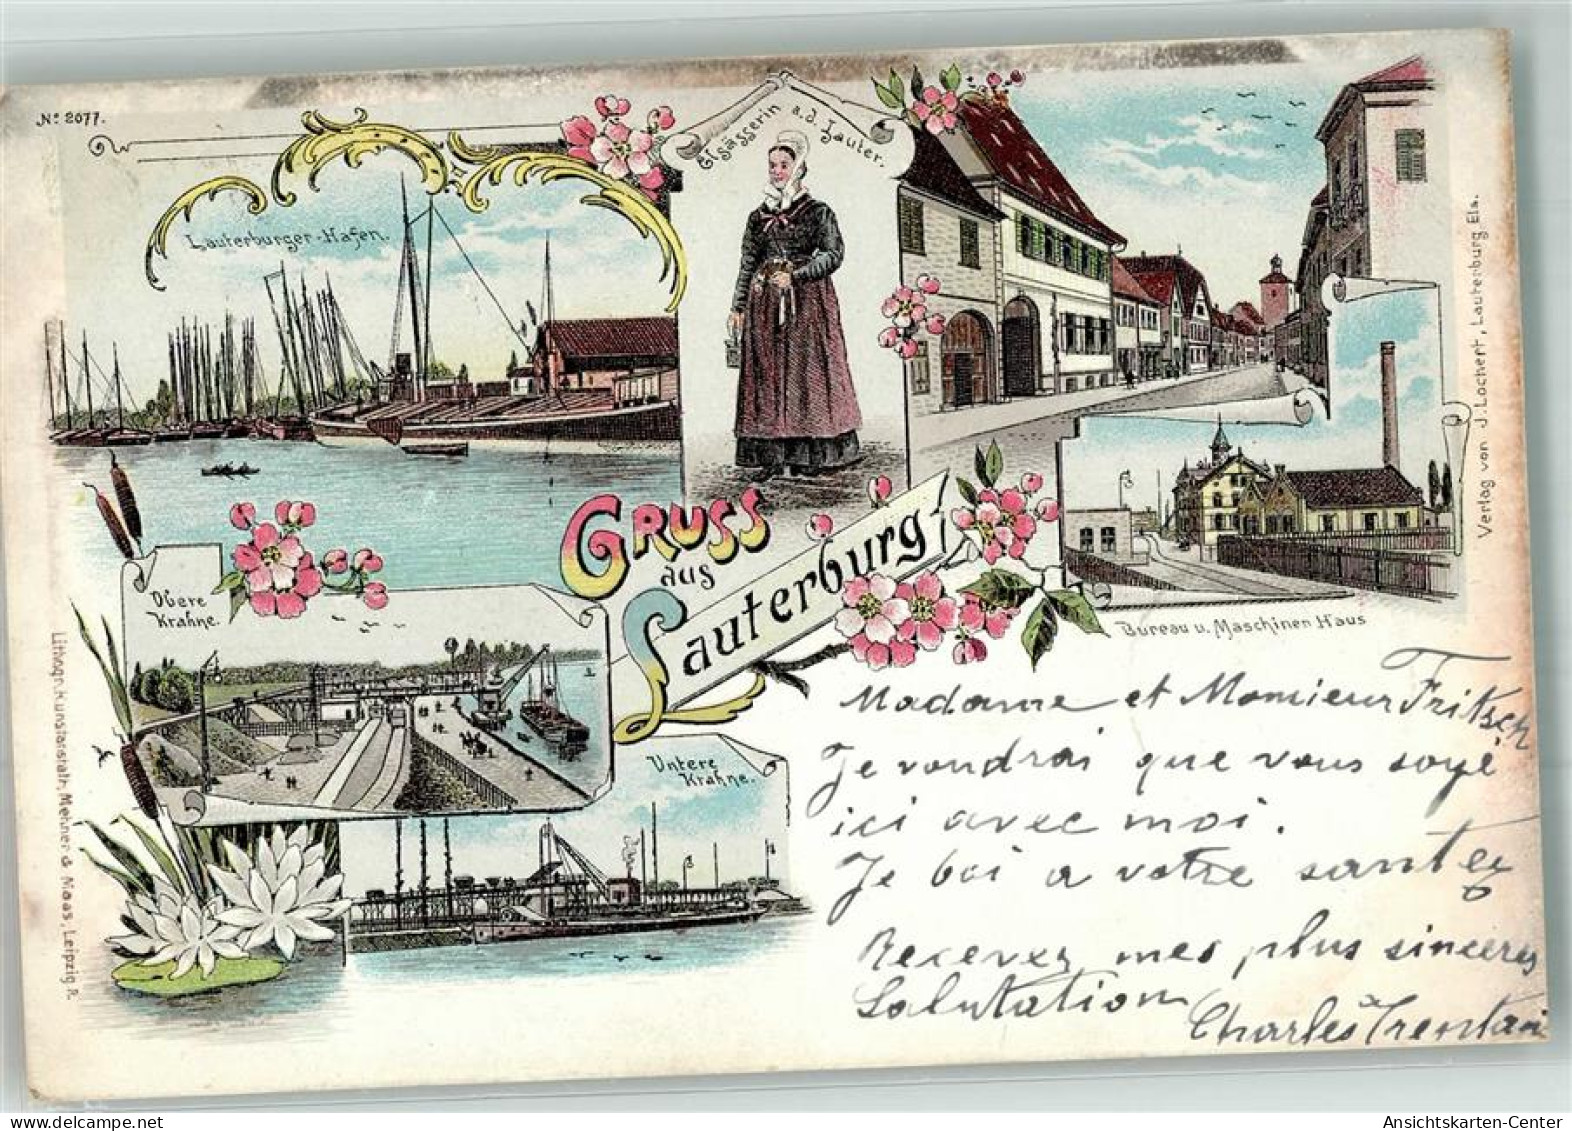 No. 2077.
Lauterburger-Hafen.
Elsässerin a.d. Lauter.
Verlag von J. Lochert, Lauterburg Els.
GRUSS
aus
Lauterburg
Obere
Krahne.
Untere
Krahne.
Bureau u. Maschinen Haus
Lithogr. Kunstanstalt, Mehner & Maas, Leipzig R.
Madame et Monsieur Fritsch
Je voudrai que vous soyé
ici avec moi.
Je boi a votre santey
Recevez mes plus sinceres
Salutation
Charles
Ansichtskarten-Center